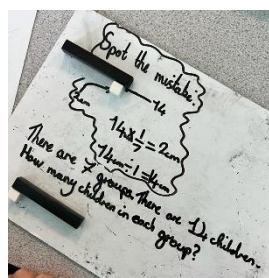 Spot the mistake.
2cm
14
14 × 1/7 = 2cm
14cm ÷ 1 = 14cm
There are 7 groups. There are 14 children.
How many children in each group?